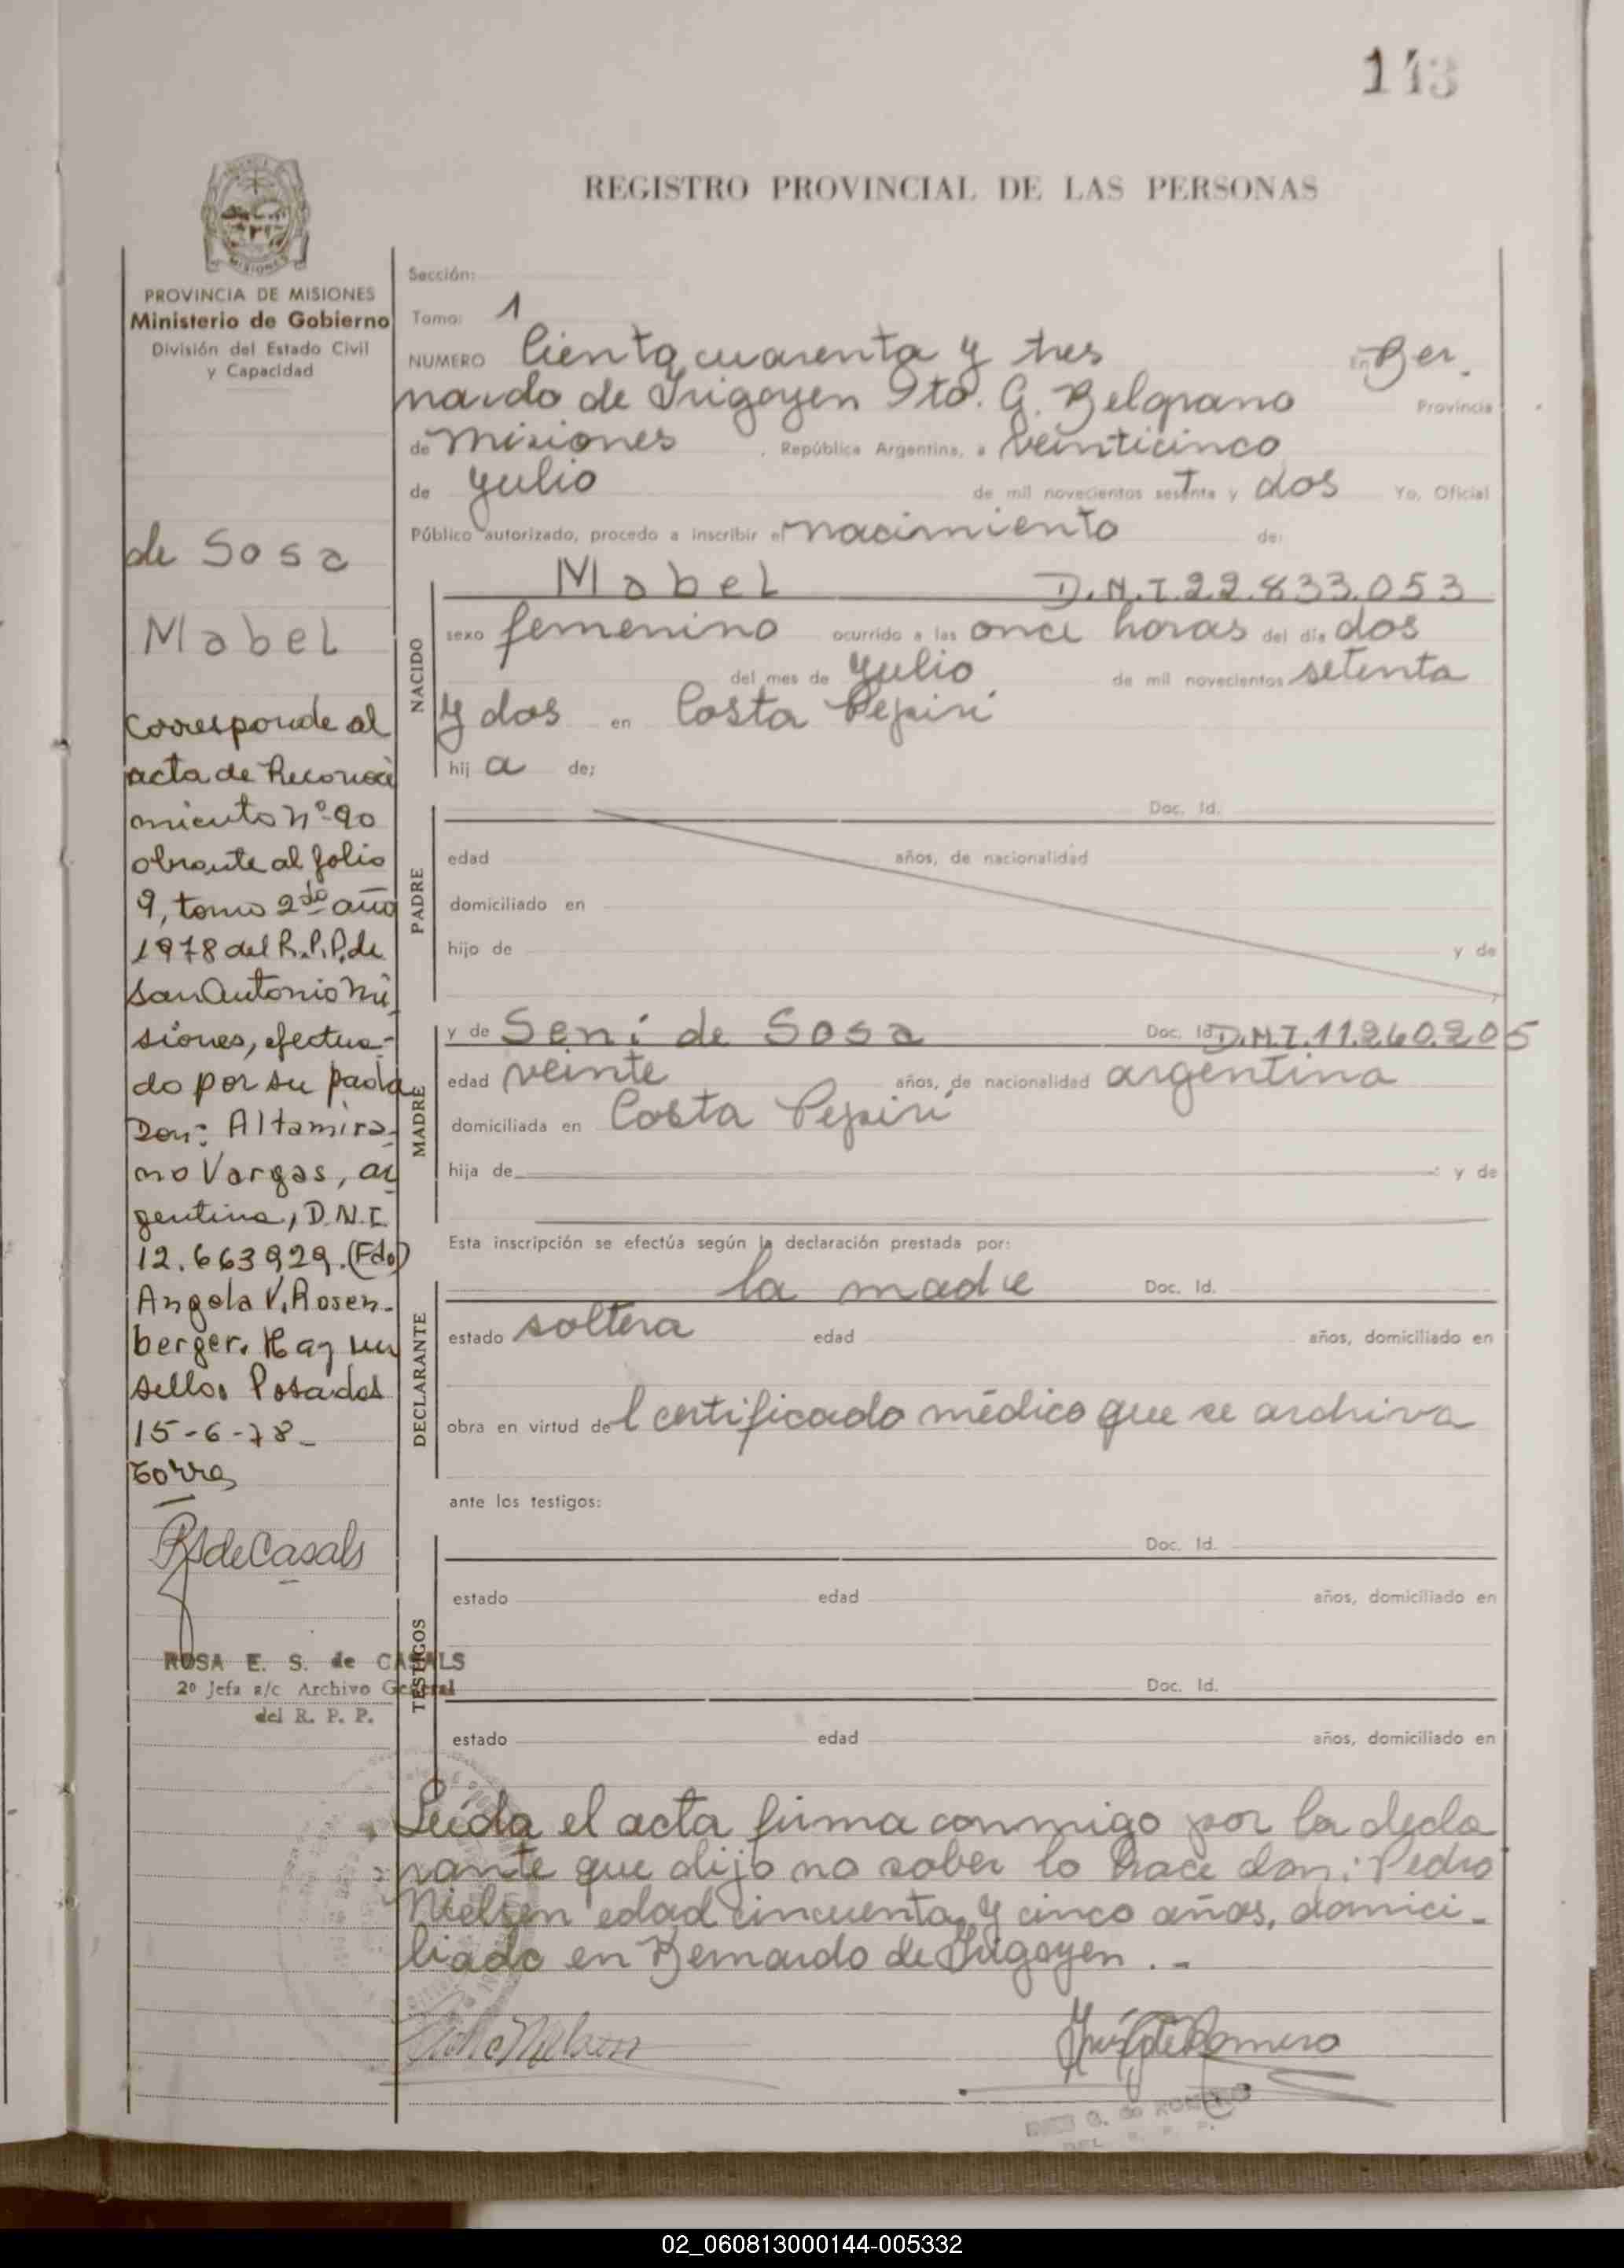 143
REGISTRO PROVINCIAL DE LAS PERSONAS
MISIONES
PROVINCIA DE MISIONES
Ministerio de Gobierno
División del Estado Civil
y Capacidad
de Sosa
Mabel
Corresponde al
acta de Reconoci
miento nº 90
obrante al folio
9, tomo 2do año
1978 del R.P.P. de
San Antonio Mi
siones, efectua-
do por su padre
Don: Altamira-
no Vargas, ar
gentino, D.N.I.
12.663929. (Fdo)
Angela V. Rosen-
berger. Hay un
sello. Posadas
15-6-78-
Torres
RSdeCasals
ROSA E. S. de CASALS
2º Jefa a/c Archivo General
del R. P. P.
Sección:
Tomo: 1
NUMERO Ciento cuarenta y tres En Ber-
nardo de Irigoyen Dto. G. Belgrano Provincia
de Misiones , República Argentina, a veinticinco
de Julio de mil novecientos setenta y dos Yo, Oficial
Público autorizado, procedo a inscribir el nacimiento de:
NACIDO
Mabel D.N.I. 22.833.053
sexo femenino ocurrido a las once horas del día dos
del mes de Julio de mil novecientos setenta
y dos en Costa Pepirí
hij a de;
PADRE
Doc. Id.
edad años, de nacionalidad
domiciliado en
hijo de y de
MADRE
y de Seni de Sosa Doc. Id. D.N.I. 11.260.205
edad veinte años, de nacionalidad argentina
domiciliada en Costa Pepirí
hija de : y de
Esta inscripción se efectúa según la declaración prestada por:
DECLARANTE
la madre Doc. Id.
estado soltera edad años, domiciliado en
obra en virtud del certificado médico que se archiva
ante los testigos:
TESTIGOS
Doc. Id.
estado edad años, domiciliado en
Doc. Id.
estado edad años, domiciliado en
Leída el acta firma conmigo por la decla
rante que dijo no saber lo hace don: Pedro
Nielsen edad cincuenta y cinco años, domici-
liado en Bernardo de Irigoyen .-
Nielsen
de Romero
G. de ROMERO
DEL R. P. P.
02_060813000144-005332